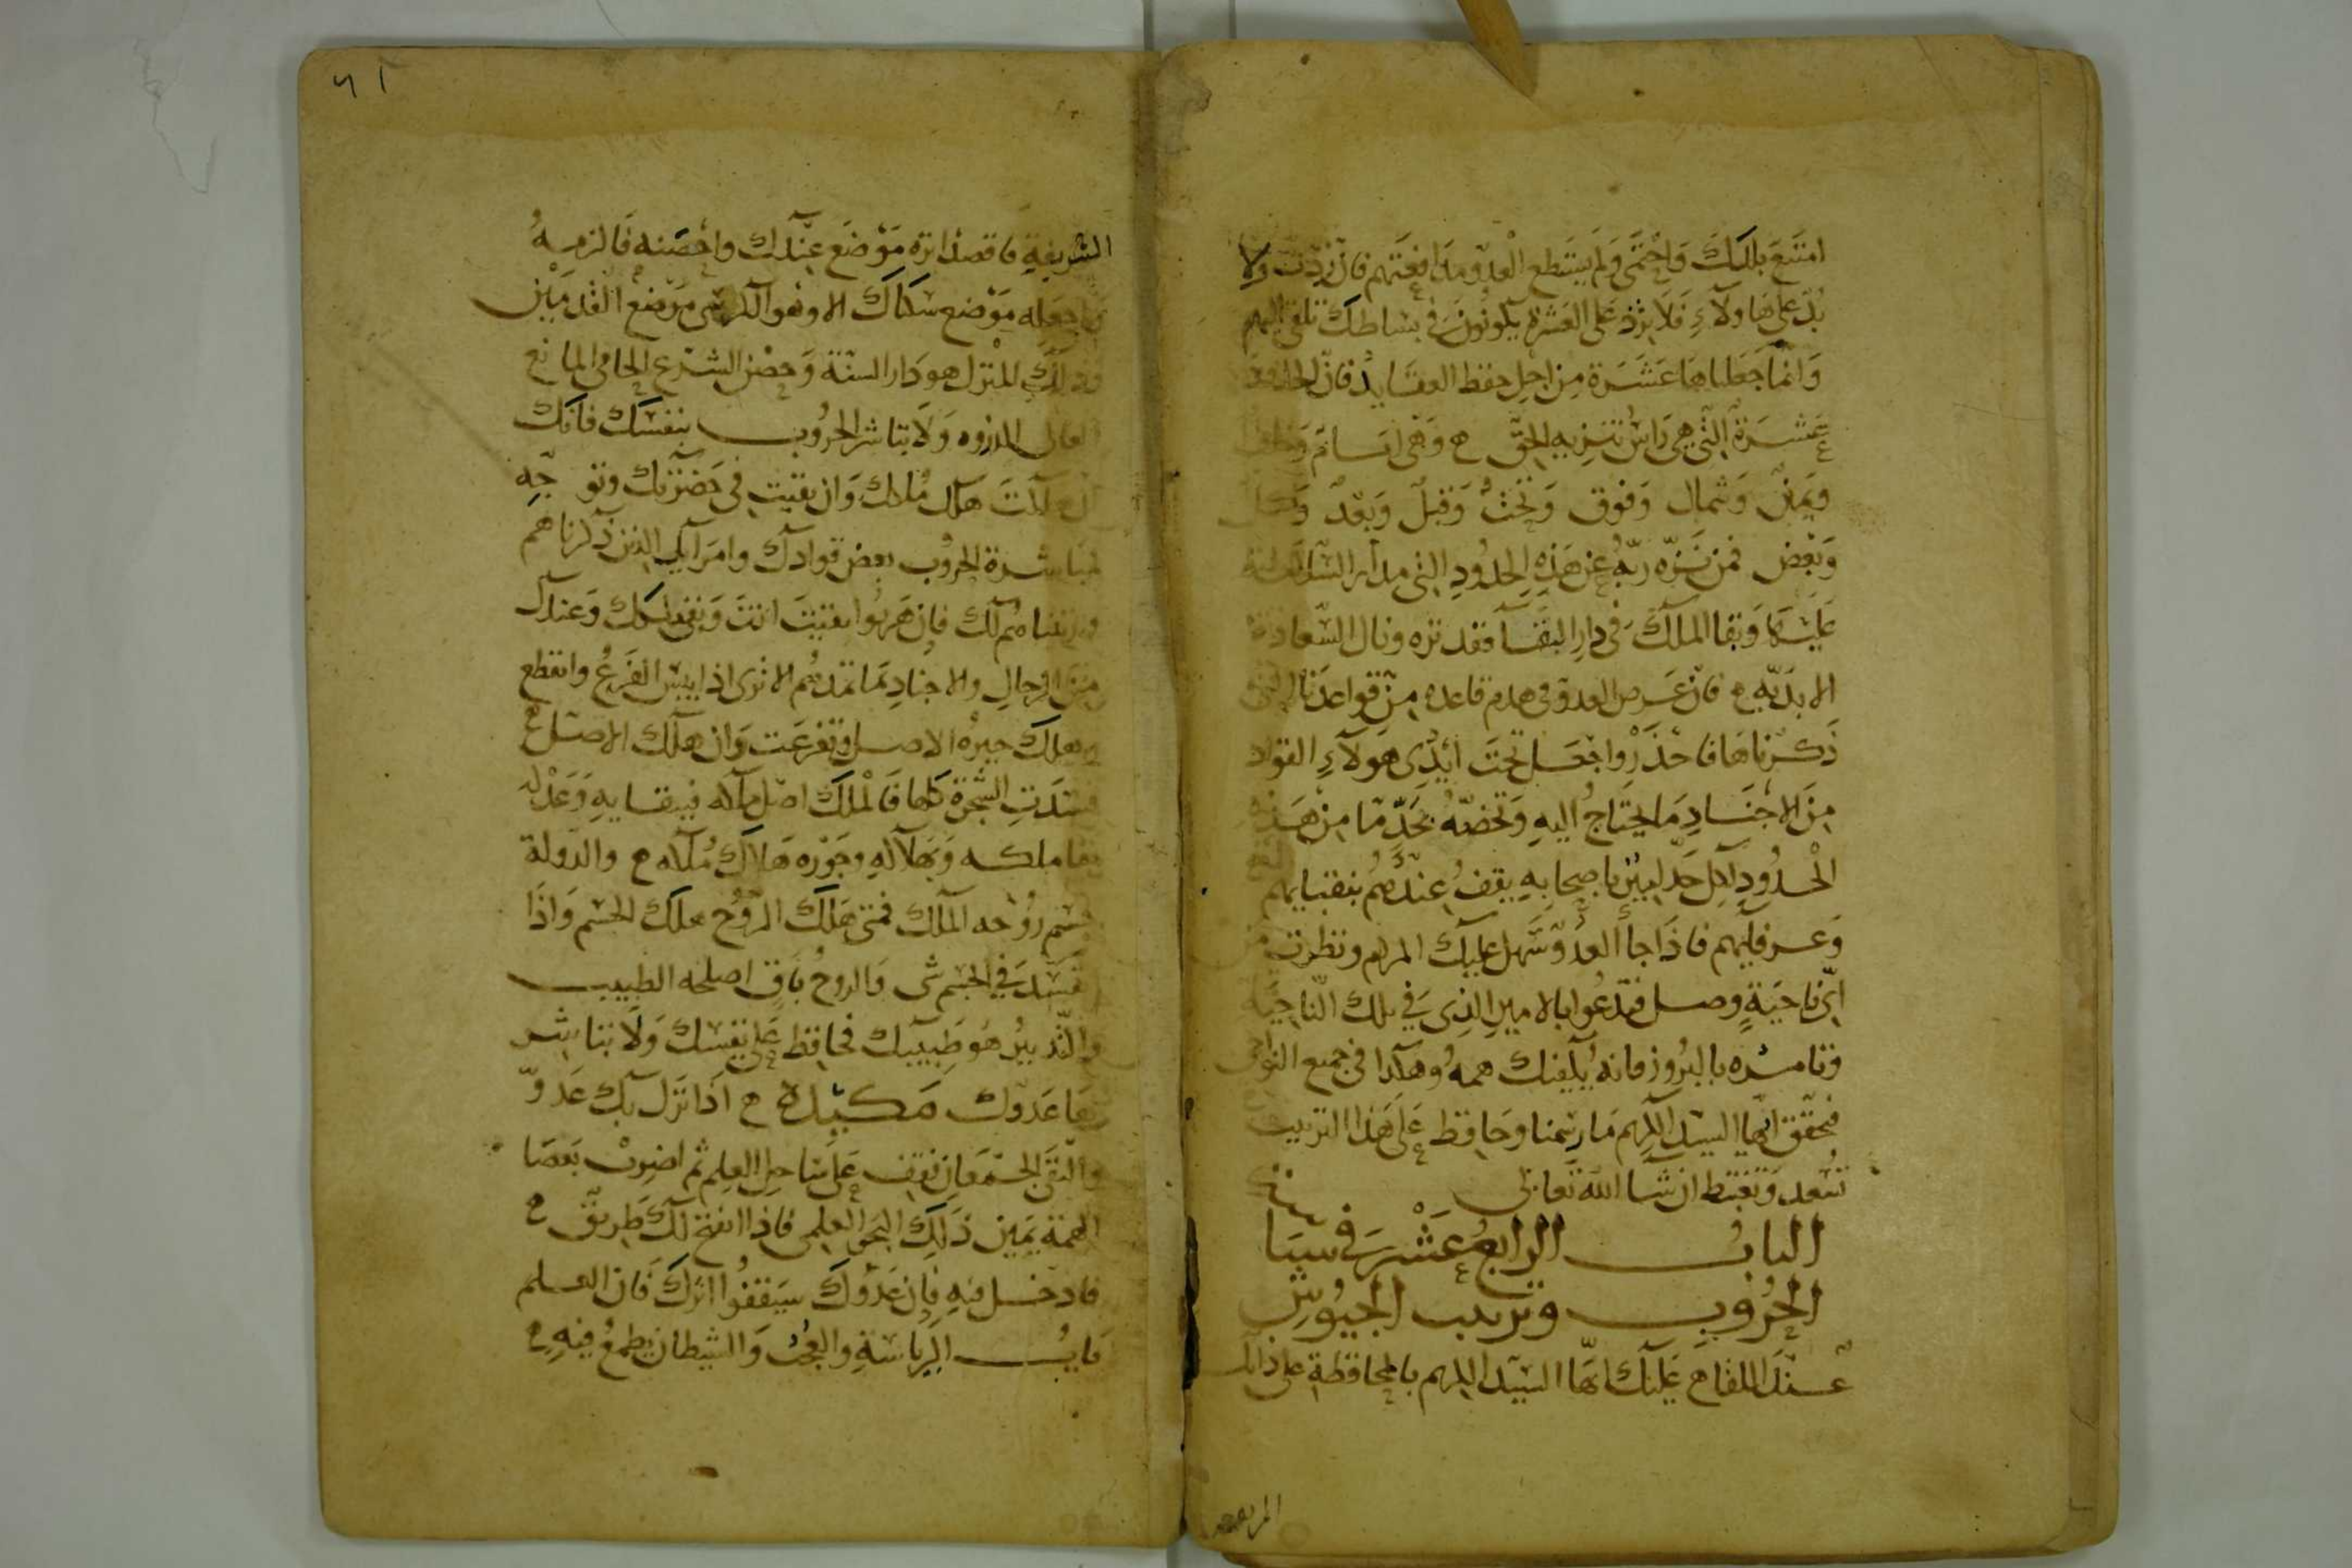 امتنع بلدك واحتمى ولم يستطع العدو مدافعتهم فان زدت ولا
بد على هاولاء فلا يزد على العشرة يكونون في بساطك تلقي اليهم
وانما جعلناها عشرة من اجل حفظ العقايد فان الحدود
عشرة التي هي راس تنزيه الحق ه وهي امام وخلف
ويمين وشمال وفوق وتحت وقبل وبعد وكل
وبعض فمن نزه ربه عن هذه الحدود التي مدار السلطنة
عليها وبقا الملك في دار البقا فقد نزه ونال السعادة
الابدية ه فان عرض العدو في هدم قاعده من قواعدنا التي
ذكرناها فاحذر واجعل تحت ايدي هولاء القواد
من الاجناد ما يحتاج اليه وتخصه بحد ما من هذه
الحدود لكل حد ليبين باصحابه يقف عندهم بنقبايهم
وعرفايهم فاذا جا العدو سهل عليك المرام ونظرت من
اي ناحية وصل فتدعوا بالامير الذي في تلك الناحية
فتامره بالبروز فانه يكفيك همه وهكذا في جميع النواحي
فحقق ايها السيد الكريم ما رسمنا وحافظ على هذا الترتيب
تسعد وتغتبط ان شا الله تعالى
الباب الرابع عشر في سياسة
الحروب وترتيب الجيوش
عند اللقا ه عليك ايها السيد الكريم بالمحافظة على ذاتك
الشريفة
الشريفة فاقصد انزه موضع عندك واحصنه فالزمه
واجعله موضع سكناك الا وهو الكرسي موضع القدمين
فذلك المنزل هو دار السنة وحصن الشرع الحامي المانع
العالي الذروه ولا تباشر الحروب بنفسك فانك
ان هلكت هلك ملكك وان بقيت في حضرتك وتوجه
لمباشرة الحروب بعض قوادك وامرايك الذين ذكرناهم
ورتبناهم لك فان هربوا بقيت انت وبقي ملكك وعندك
من الرجال والاجناد ما تمدهم الا ترى اذا يبس الفرع وانقطع
وهلك جبره الاصل وتفرعت وان هلك الاصل ه
فسدت الشجرة كلها فالملك اصل ملكه فببقايه وعدله
بقا ملكه وبهلاكه وجوره هلاك ملكه ه والدولة
جسم روحه الملك فمتى هلك الروح هلك الجسم واذا
فسد في الجسم شي والروح باق اصلحه الطبيب
والتدبير هو طبيبك فحافظ على نفسك ولا تباشر
لقا عدوك مكيدة ه اذا نزل بك عدو
والتقى الجمعان فقف على ساحل العلم ثم اضرب بعصا
الهمة يمين ذلك البحر العلمي فاذا انفتح لك طريق ه
فادخل فيه فان عدوك سيقفوا اثرك فان العلم
باب الرياسة والعجب والشيطان يطمع فيه ه